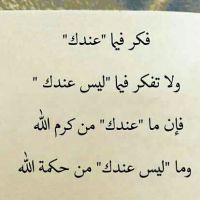 فكر فيما "عندك"
ولا تفكر فيما "ليس عندك "
فإن ما "عندك" من كرم الله
وما "ليس عندك" من حكمة الله